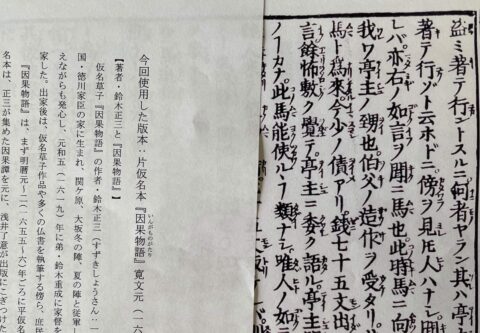 盗ミ著テ行ントスルニ何者ヤラン其ハ亭
著テ行ゾト云ホドニ傍ヲ見レ𪜈人ハナシ
レバ亦右ノ如言ヲ聞ニ馬也此時馬ニ向
我ワ亭主ノ甥也伯父ノ造作ヲ受タリ
馬ト爲來今少ノ債アリ銭七十五文出
言餘怖敷覺テ亭主ニ委ク語ル亭主
カナ此馬能使ルフ類ナシ唯人ノ如
今回使用した版本・片仮名本『因果物語』寛文元（一六
いんがものがたり
【著者・鈴木正三と『因果物語』】
仮名草子『因果物語』の作者・鈴木正三（すずきしょうさん・一
国・徳川家臣の家に生まれ、関ケ原、大坂冬の陣、夏の陣と従軍
えながらも発心し、元和五（一六一九）年に弟・鈴木重成に家督を
家した。出家後は、仮名草子作品や多くの仏書を執筆する傍ら、庶民
『因果物語』は、まず明暦元〜二（一六五五〜六）年ごろに平仮名
名本は、正三が集めた因果譚を元に、浅井了意が出版にこぎつけた